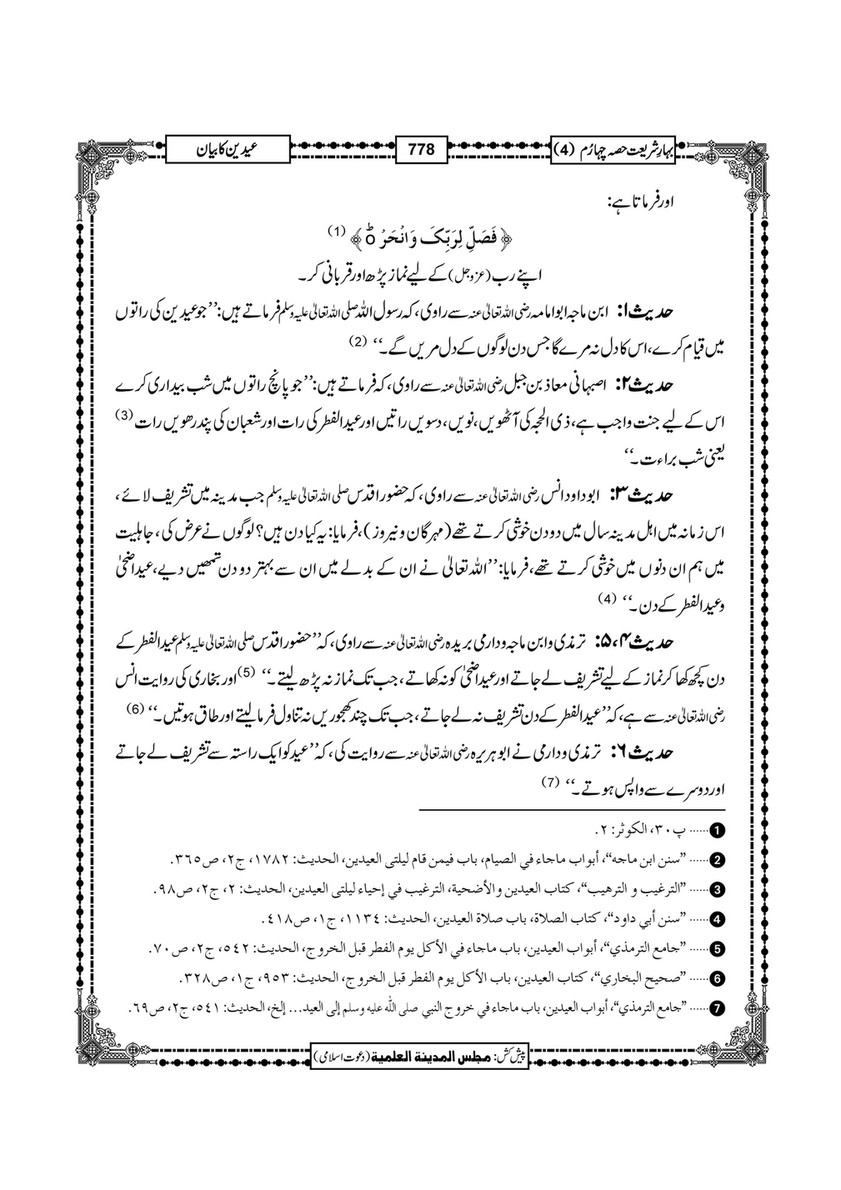 بہارِشریعت حصہ چہارُم (4)
778
عیدین کا بیان
اور فرماتا ہے:
﴿ فَصَلِّ لِرَبِّکَ وَانْحَرْ ؕ﴾ (1)
اپنے رب (عزوجل) کے لیے نماز پڑھ اور قربانی کر۔
حدیث ۱: ابن ماجہ ابوامامہ رضی اللہ تعالیٰ عنہ سے راوی، کہ رسول اللہ صلی اللہ تعالیٰ علیہ وسلم فرماتے ہیں: ’’جو عیدین کی راتوں
میں قیام کرے، اس کا دل نہ مرے گا جس دن لوگوں کے دل مریں گے۔‘‘ (2)
حدیث ۲: اصبہانی معاذ بن جبل رضی اللہ تعالیٰ عنہ سے راوی، کہ فرماتے ہیں: ’’جو پانچ راتوں میں شب بیداری کرے
اس کے لیے جنت واجب ہے، ذی الحجہ کی آٹھویں، نویں، دسویں راتیں اور عیدالفطر کی رات اور شعبان کی پندرھویں رات (3)
یعنی شب براءت۔‘‘
حدیث ۳: ابوداود انس رضی اللہ تعالیٰ عنہ سے راوی، کہ حضور اقدس صلی اللہ تعالیٰ علیہ وسلم جب مدینہ میں تشریف لائے،
اس زمانہ میں اہل مدینہ سال میں دو دن خوشی کرتے تھے (مہرگان و نیروز)، فرمایا: یہ کیا دن ہیں؟ لوگوں نے عرض کی، جاہلیت
میں ہم ان دنوں میں خوشی کرتے تھے، فرمایا: ’’اللہ تعالیٰ نے ان کے بدلے میں ان سے بہتر دو دن تمھیں دیے، عید اضحیٰ
و عیدالفطر کے دن۔‘‘ (4)
حدیث ۴،۵: ترمذی و ابن ماجہ و دارمی بریدہ رضی اللہ تعالیٰ عنہ سے راوی، کہ ’’حضور اقدس صلی اللہ تعالیٰ علیہ وسلم عیدالفطر کے
دن کچھ کھا کر نماز کے لیے تشریف لے جاتے اور عید اضحیٰ کو نہ کھاتے، جب تک نماز نہ پڑھ لیتے۔‘‘ (5) اور بخاری کی روایت انس
رضی اللہ تعالیٰ عنہ سے ہے، کہ ’’عیدالفطر کے دن تشریف نہ لے جاتے، جب تک چند کھجوریں نہ تناول فرمالیتے اور طاق ہوتیں۔‘‘ (6)
حدیث ۶: ترمذی و دارمی نے ابوہریرہ رضی اللہ تعالیٰ عنہ سے روایت کی، کہ ’’عید کو ایک راستہ سے تشریف لے جاتے
اور دوسرے سے واپس ہوتے۔‘‘ (7)
1 ...... پ۳۰، الکوثر: ۲.
2 ...... ”سنن ابن ماجه“، أبواب ماجاء في الصيام، باب فيمن قام ليلتى العيدين، الحديث: ١٧٨٢، ج٢، ص٣٦٥.
3 ...... ”الترغيب و الترهيب“، كتاب العيدين والأضحية، الترغيب في إحياء ليلتى العيدين، الحديث: ٢، ج٢، ص٩٨.
4 ...... ”سنن أبي داود“، كتاب الصلاة، باب صلاة العيدين، الحديث: ١١٣٤، ج١، ص٤١٨.
5 ...... ”جامع الترمذي“، أبواب العيدين، باب ماجاء في الأكل يوم الفطر قبل الخروج، الحديث: ٥٤٢، ج٢، ص٧٠.
6 ...... ”صحيح البخاري“، كتاب العيدين، باب الأكل يوم الفطر قبل الخروج، الحديث: ٩٥٣، ج١، ص٣٢٨.
7 ...... ”جامع الترمذي“، أبواب العيدين، باب ماجاء في خروج النبي صلى الله عليه وسلم إلى العيد... إلخ، الحديث: ٥٤١، ج٢، ص٦٩.
پیش کش: مجلس المدینة العلمیة (دعوت اسلامی)